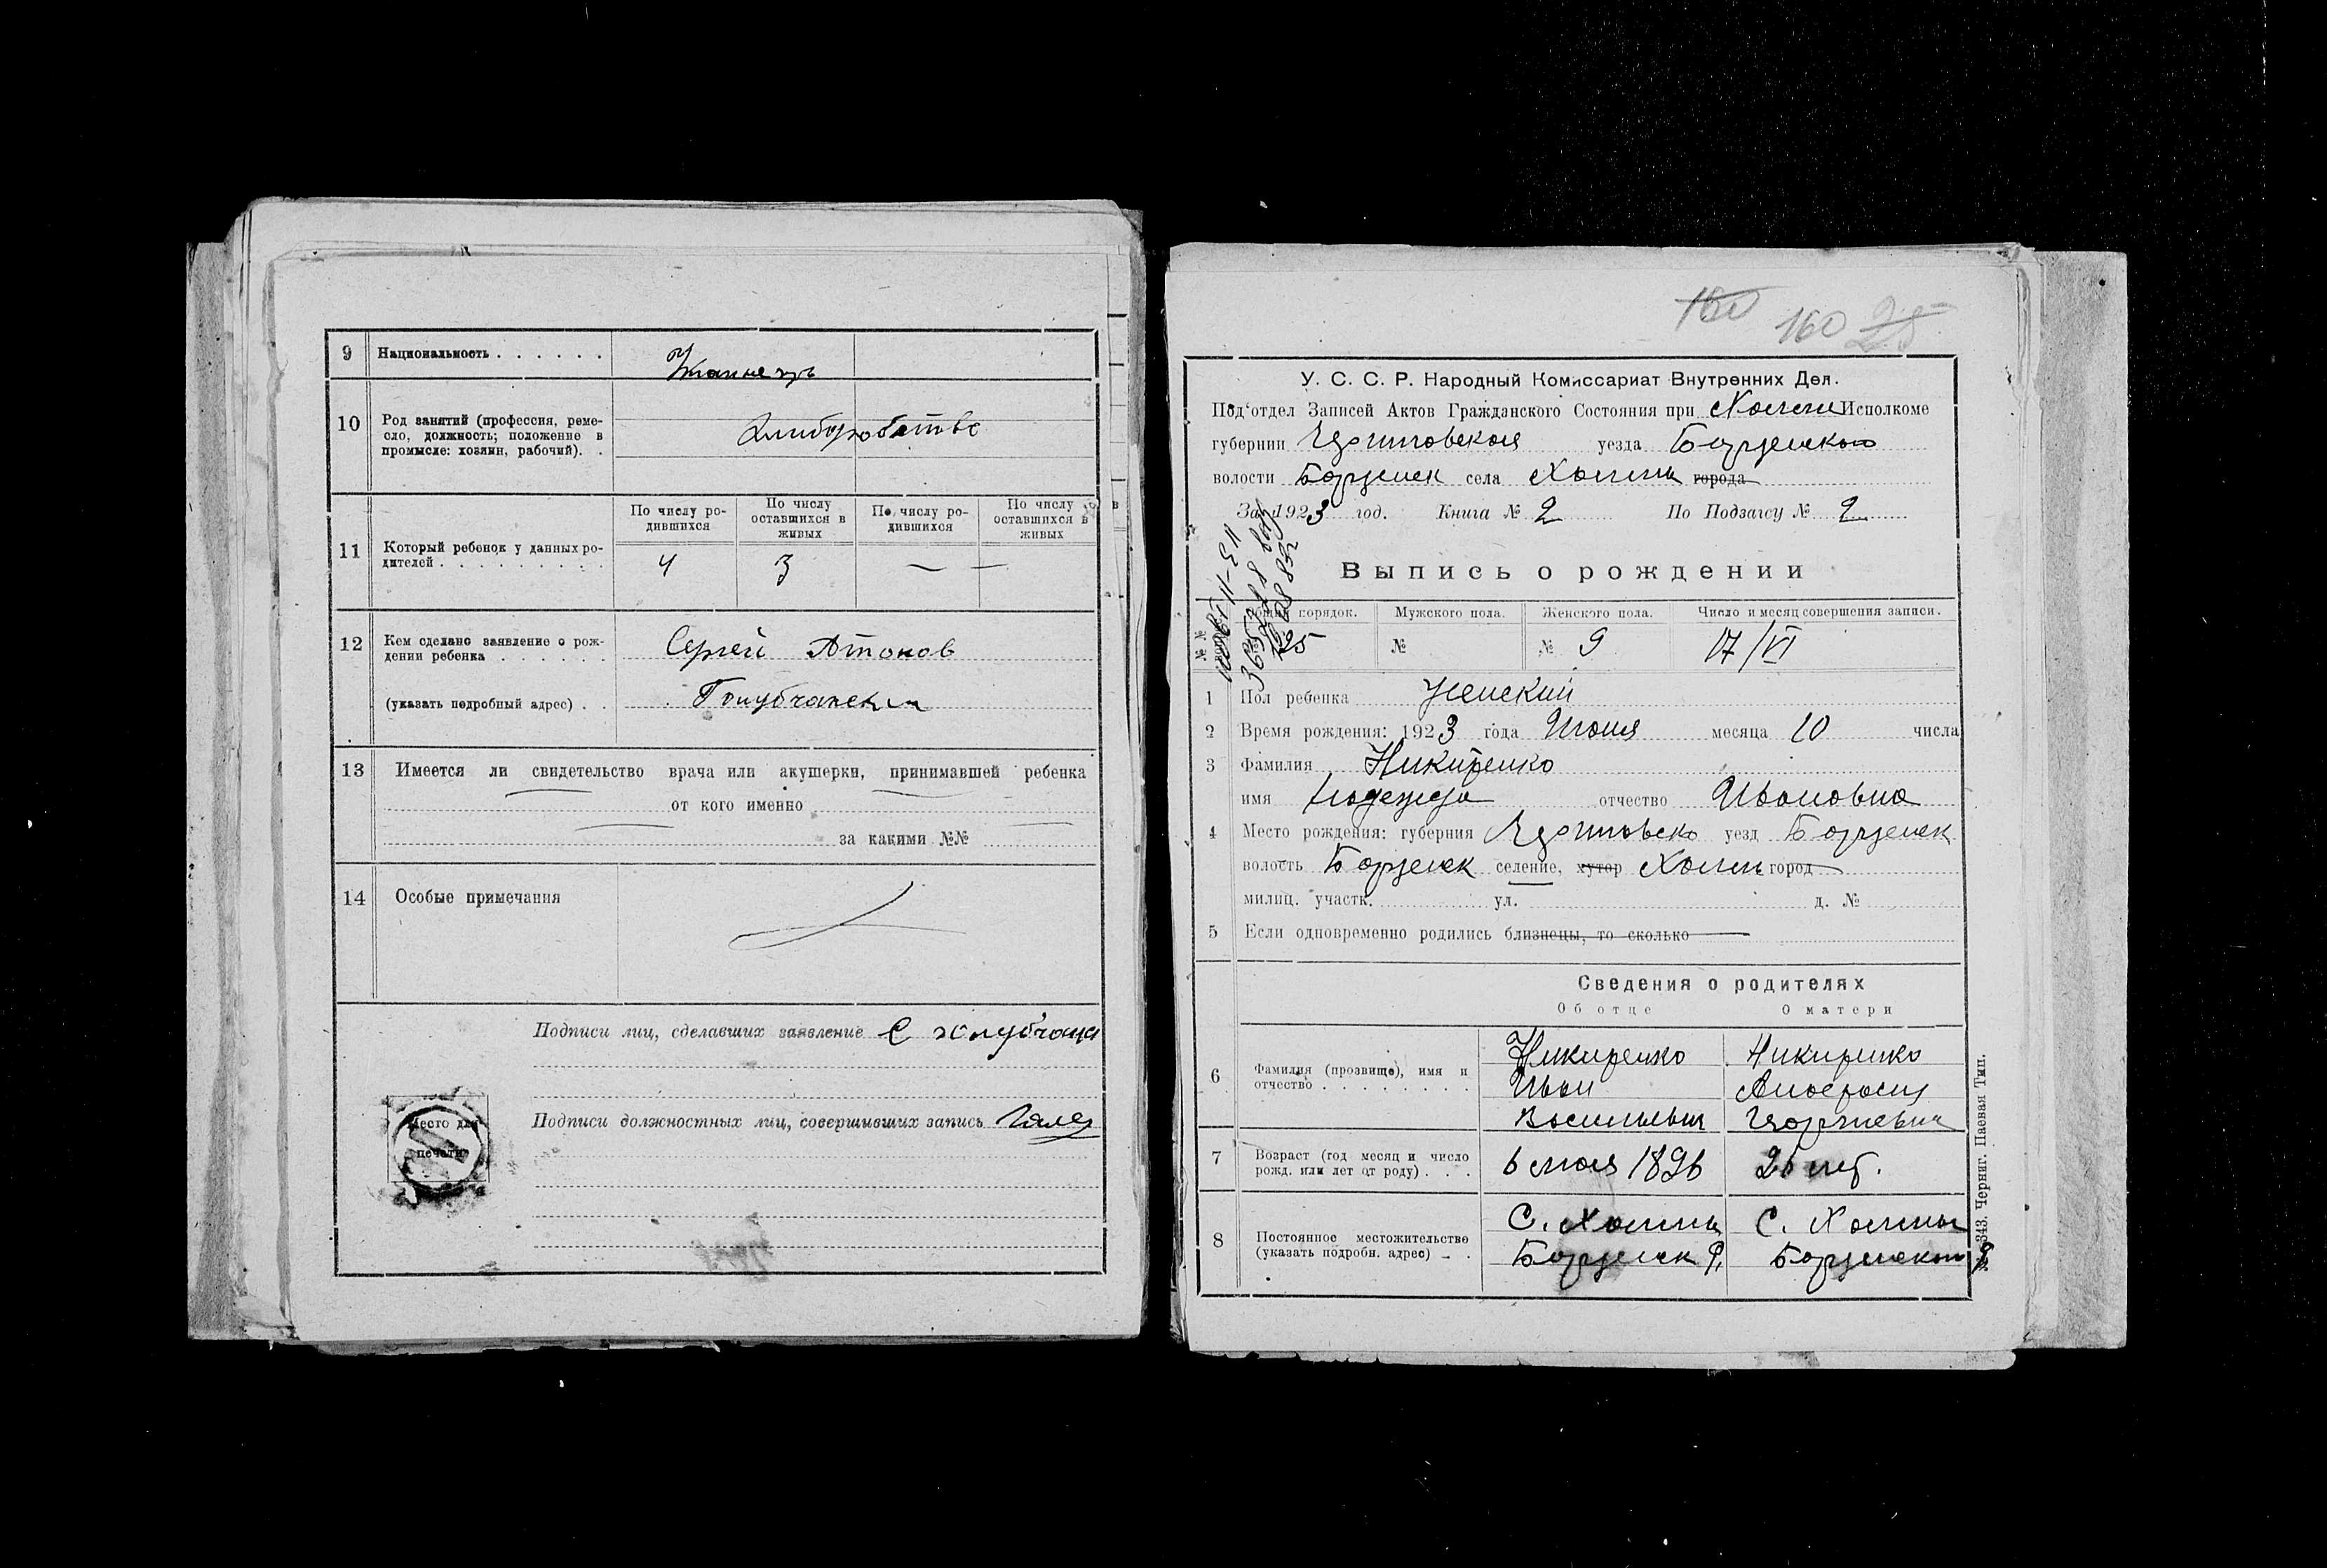 9 Национальность . . . . . .
10 Род занятий (профессия, реме-
сло, должность; положение в
промысле: хозяин, рабочий). .
11 Который ребенок у данных ро-
дителей . . . . . . . . .
По числу ро-
дившихся
По числу
оставшихся в
живых
По числу ро-
дившихся
По числу
оставшихся в
живых
4 3 — —
12 Кем сделано заявление о рож-
дении ребенка . . . . . . Сергей Антонов
(указать подробный адрес) . .
13 Имеется ли свидетельство врача или акушерки, принимавшей ребенка
от кого именно
за какими №№
14 Особые примечания
Подписи лиц, сделавших заявление С
Подписи должностных лиц, совершивших запись
Место для
печати
160 160 25
У. С. С. Р. Народный Комиссариат Внутренних Дел.
Под'отдел Записей Актов Гражданского Состояния при Холми Исполкоме
губернии уезда Борзенского
волости Борзенск села Холми города
За 1923 год. Книга № 2 По Подзагсу № 2
Выпись о рождении
порядок. Мужского пола. Женского пола. Число и месяц совершения записи.
25 № № 9 17/VI
1 Пол ребенка Женский
2 Время рождения: 1923 года Июня месяца 10 числа
3 Фамилия Никиренко
имя Надежда отчество Ивановна
4 Место рождения: губерния уезд Борзенск
волость Борзенск селение, хутор Холми город
милиц. участк. ул. д. №
5 Если одновременно родились близнецы, то сколько
Сведения о родителях
Об отце О матери
6 Фамилия (прозвище), имя и
отчество . . . . . . . .
Никиренко Никиренко
Иван
Васильевич
7 Возраст (год месяц и число
рожд. или лет от роду) . . .
6 мая 1896
8 Постоянное местожительство
(указать подробн. адрес) – .
С. Холми С. Холмы
Борзенск Р. Борзенского
№ 343. Черниг. Паевая Тип.